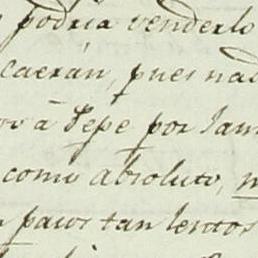 podría venderlo
caerán, pues nad
à Pepe por
como absoluto,
pasos tan lentos